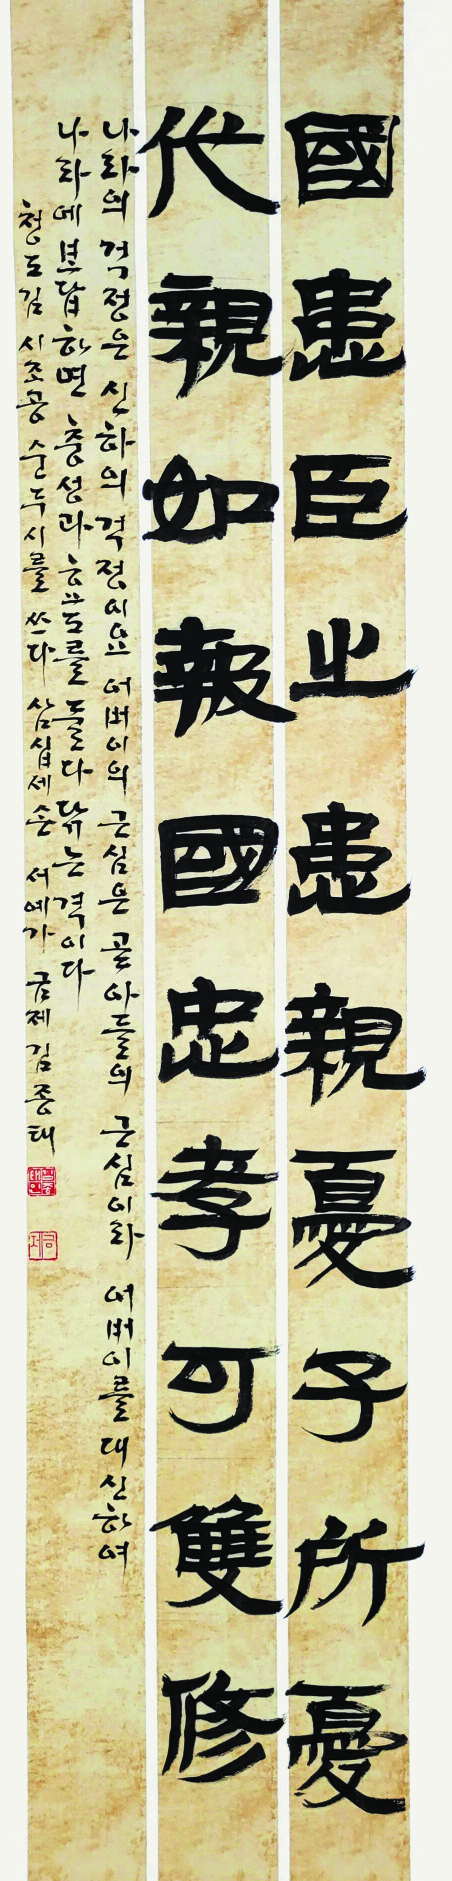 國患臣之患親憂子所憂
代親如報國忠孝可雙修
나라의 걱정은 신하의 걱정이요 어버이의 근심은 곧 아들의 근심이라 어버이를 대신하여
나라에 보답하면 충성과 효도를 둘다 닦는 격이다
청도김 시조공 순두시를 쓰다 삼십세손 서예가 금제 김종태